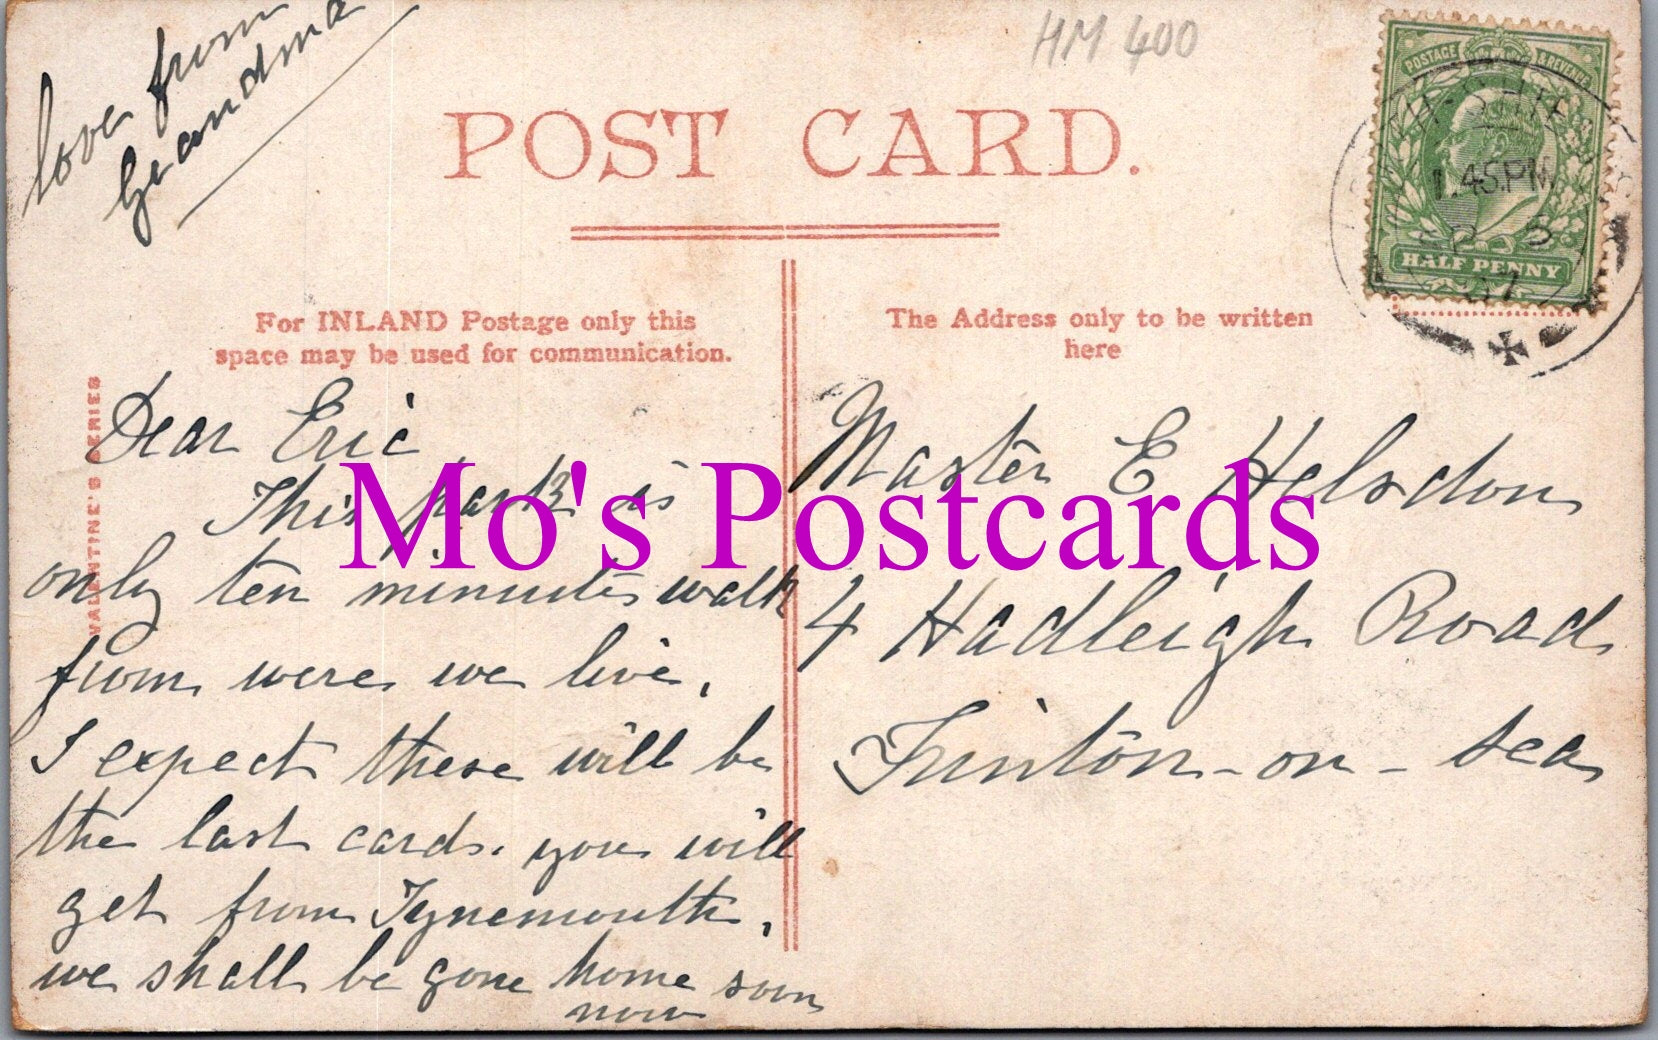 love from
Grandma
HM 400
POSTAGE & REVENUE
1.45 PM
HALF PENNY
POST CARD.
For INLAND Postage only this
space may be used for communication.
The Address only to be written
here
VALENTINE'S SERIES
Dear Eric
This park is
only ten minutes walk
from were we live.
I expect these will be
the last cards. you will
get from Tynemouth,
we shall be gone home soon
now
Master E Helsdon
4 Hadleigh Road
Frinton-on-Sea
Mo's Postcards